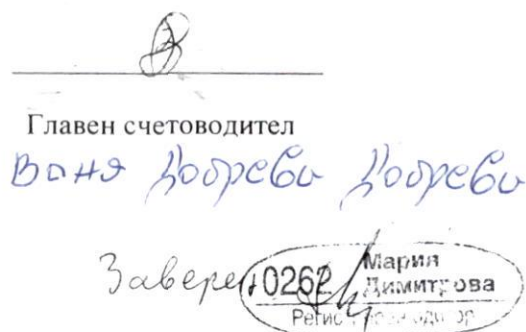 Главен счетоводител
Ваня Добрева Добрева
Заверен 0262 Мария
Димитрова
Регистриран одитор